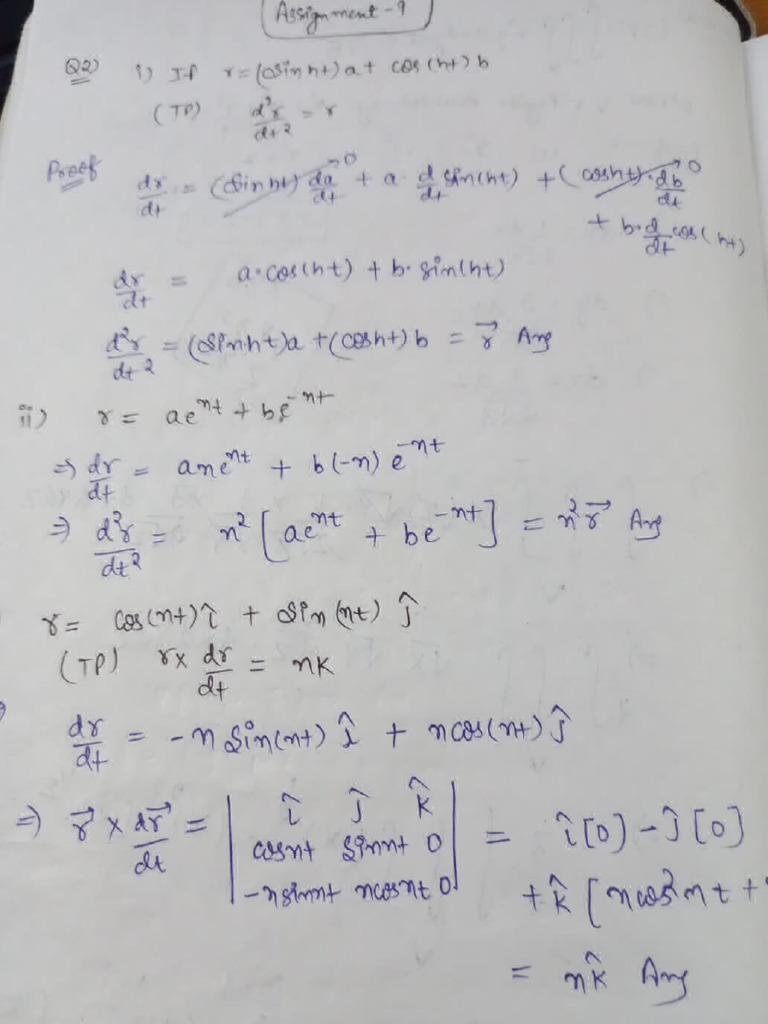 Assignment-9
Q2) i) If r = (sinht)a + cos(ht)b
(TP) d²r/dt² = r
Proof dr/dt = (sinht) da/dt → 0 + a · d/dt sin(ht) + (cosht) · db/dt → 0
+ b · d/dt cos(ht)
dr/dt = a·cos(ht) + b·sin(ht)
d²r/dt² = (sinht)a + (cosht)b = r⃗ Ans
ii) r = ae^nt + be^-nt
⇒ dr/dt = ane^nt + b(-n)e^-nt
⇒ d²r/dt² = n²[ae^nt + be^-nt] = n²r⃗ Ans
r = cos(nt)î + sin(nt)ĵ
(TP) r × dr/dt = nk
dr/dt = -n sin(nt)î + n cos(nt)ĵ
⇒ r⃗ × dr⃗/dt = | î ĵ k̂ | = î[0] - ĵ[0]
| cosnt sinnt 0 |
| -nsinnt ncosnt 0 | + k̂[ncos²nt +
= nk̂ Ans